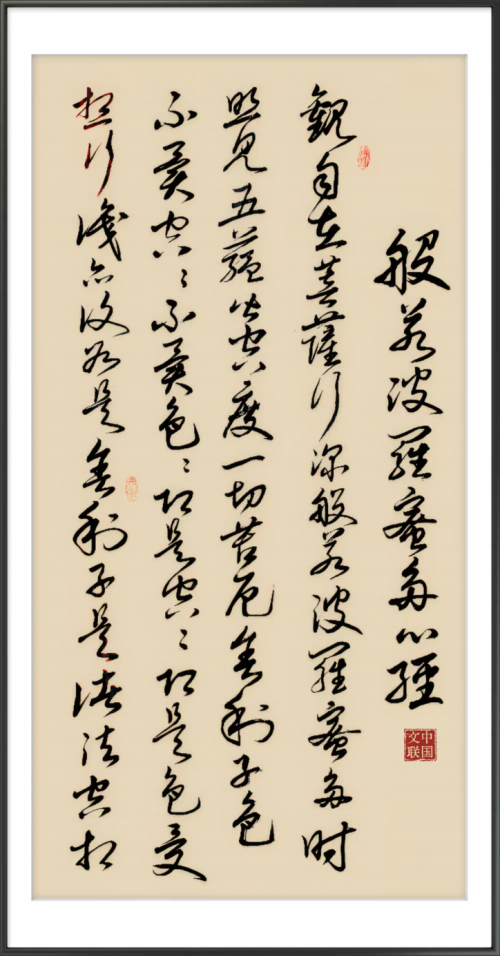 般若波羅蜜多心經
中国文联
觀自在菩薩行深般若波羅蜜多时
照見五蘊皆空度一切苦厄舍利子色
不異空々不異色々即是空々即是色受
想行識亦復如是舍利子是諸法空相